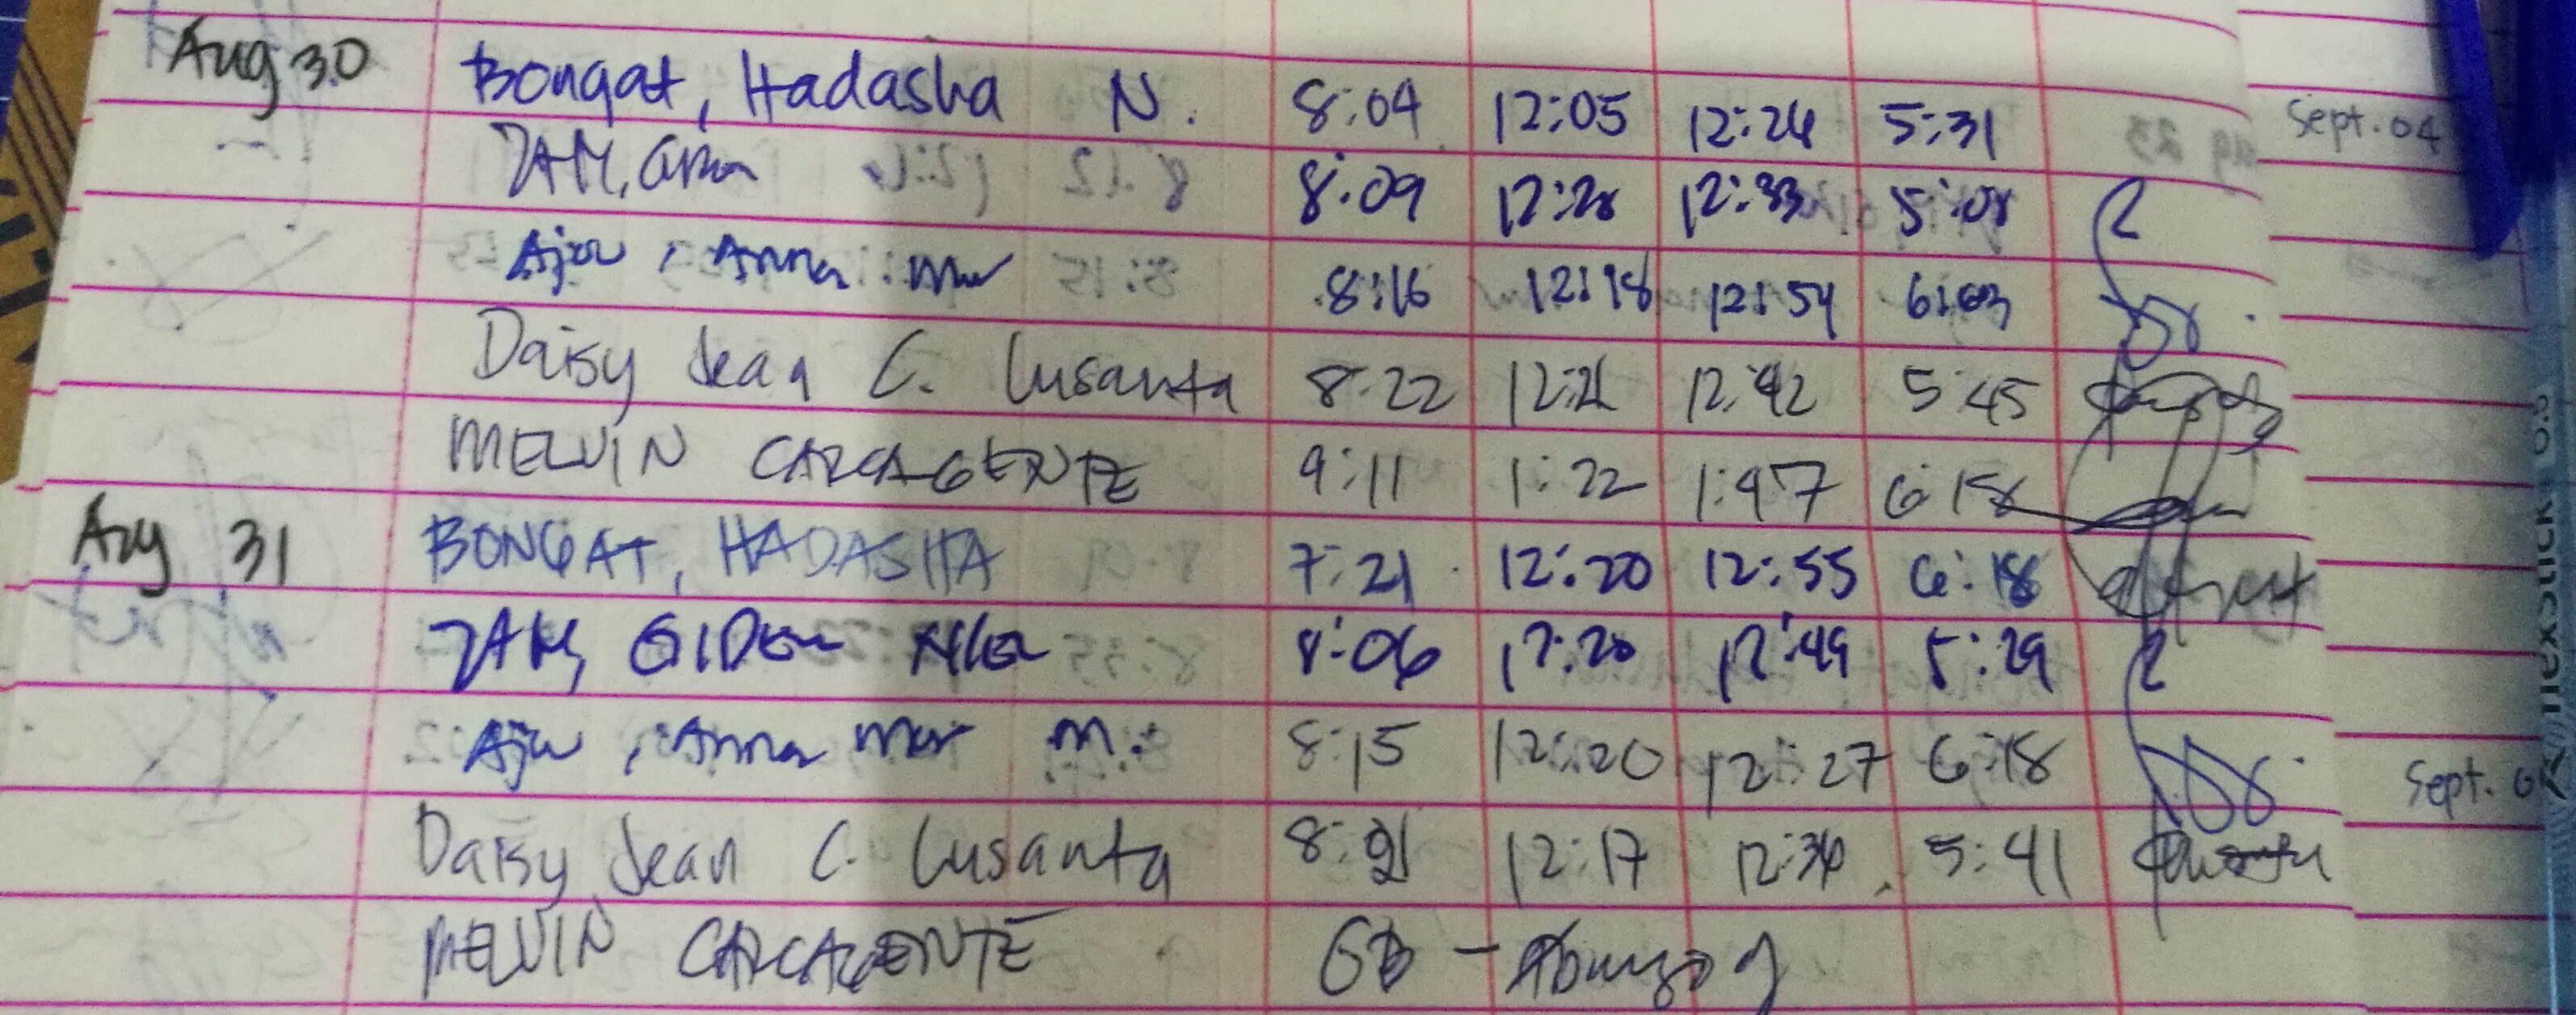 Aug 30 Bongat, Hadasha N. 8:04 12:05 12:26 5:31
JAM, 8:09 12:28 12:33 5:08
Anna 8:16 12:18 12:54 6:03
Daisy Jean C. Lusanta 8:22 12:21 12:42 5:45
MELVIN CARCAGENTE 9:11 1:22 1:47 6:18
Aug 31 BONGAT, HADASHA 7:21 12:20 12:55 6:18
JAM, GIDEON 8:06 12:20 12:49 5:29
Anna Mar M. 8:15 12:20 12:27 6:18
Daisy Jean C. Lusanta 8:21 12:17 12:36 5:41
MELVIN CARCAGENTE OB -
Sept. 04
Sept.
nexstick 0.5